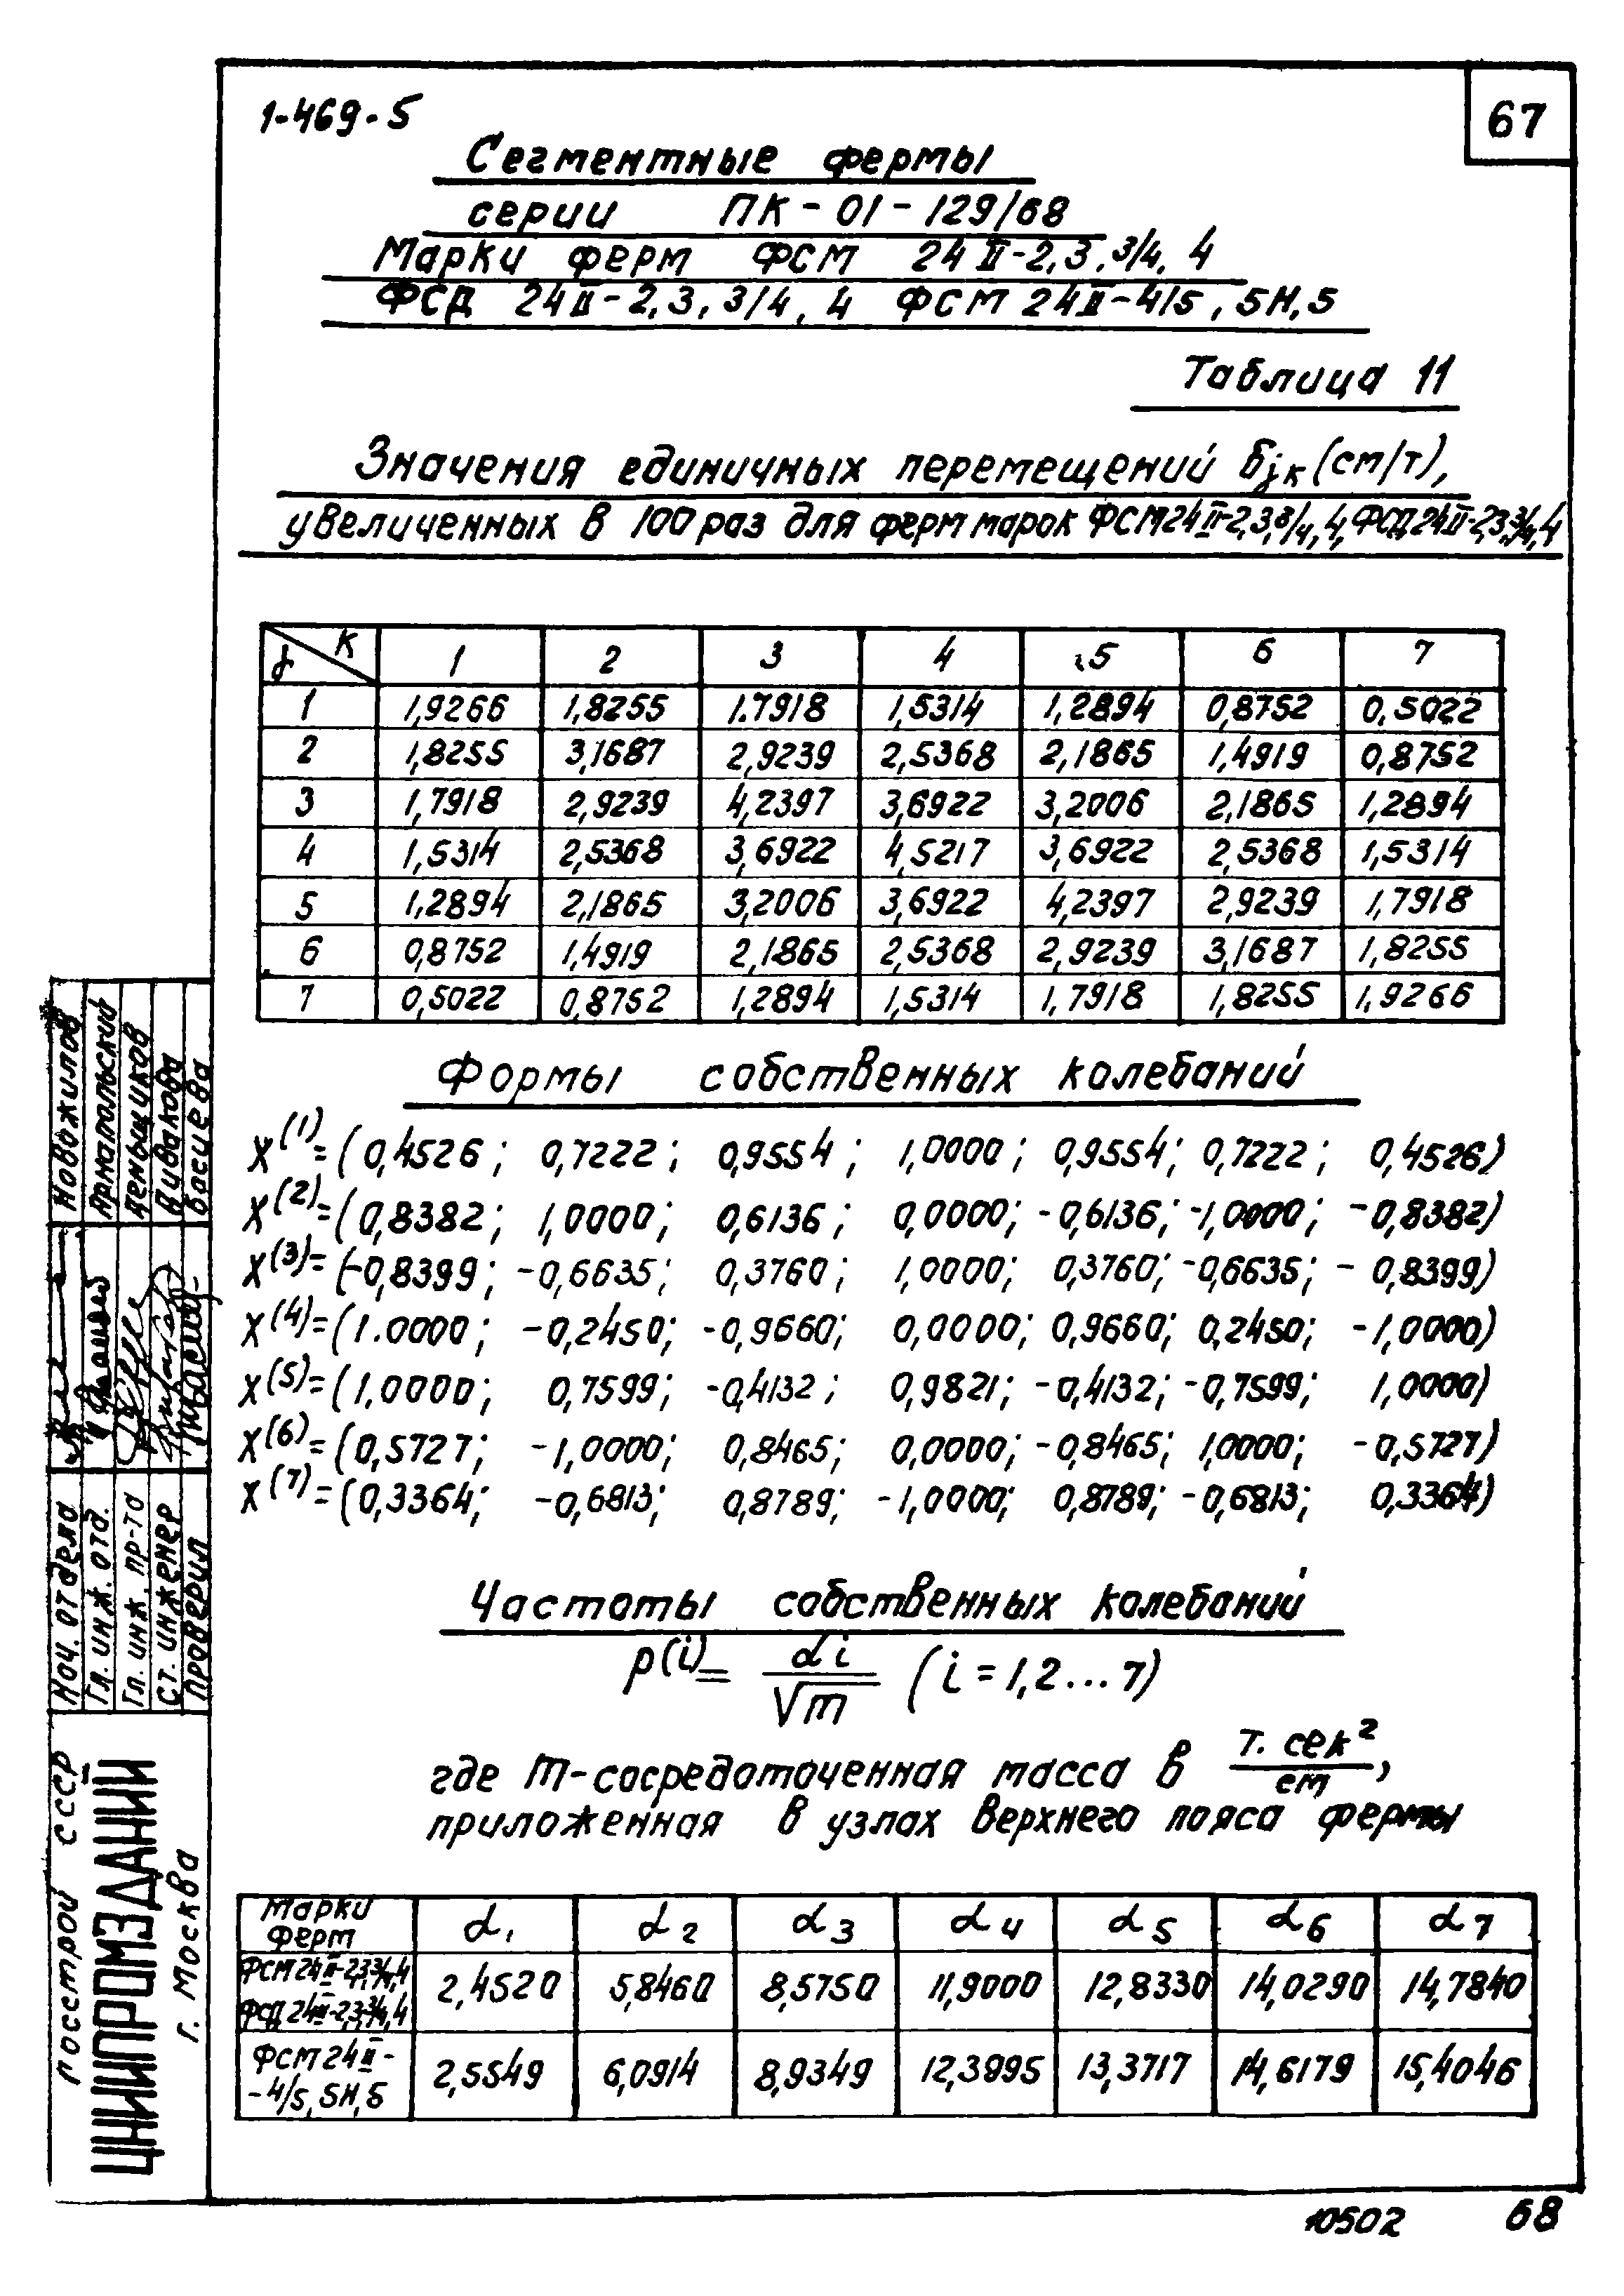 1-469-5
67
Сегментные фермы
серии ПК-01-129/68
Марки ферм ФСМ 24 II-2,3,3/4, 4
ФСД 24 II-2,3,3/4, 4 ФСМ 24 II-4/5, 5Н,5
Таблица 11
Значения единичных перемещений δjк (см/т),
увеличенных в 100 раз для ферм марок ФСМ24 II-2,3,3/4, 4, ФСД24 II-2,3,3/4, 4
j К 1 2 3 4 5 6 7
1 1,9266 1,8255 1.7918 1,5314 1,2894 0,8752 0,5022
2 1,8255 3,1687 2,9239 2,5368 2,1865 1,4919 0,8752
3 1,7918 2,9239 4,2397 3,6922 3,2006 2,1865 1,2894
4 1,5314 2,5368 3,6922 4,5217 3,6922 2,5368 1,5314
5 1,2894 2,1865 3,2006 3,6922 4,2397 2,9239 1,7918
6 0,8752 1,4919 2,1865 2,5368 2,9239 3,1687 1,8255
7 0,5022 0,8752 1,2894 1,5314 1,7918 1,8255 1,9266
Формы собственных колебаний
X(1)=(0,4526; 0,7222; 0,9554; 1,0000; 0,9554; 0,7222; 0,4526)
X(2)=(0,8382; 1,0000; 0,6136; 0,0000; -0,6136; -1,0000; -0,8382)
X(3)=(-0,8399; -0,6635; 0,3760; 1,0000; 0,3760; -0,6635; -0,8399)
X(4)=(1.0000; -0,2450; -0,9660; 0,0000; 0,9660; 0,2450; -1,0000)
X(5)=(1,0000; 0,7599; -0,4132; 0,9821; -0,4132; -0,7599; 1,0000)
X(6)=(0,5727; -1,0000; 0,8465; 0,0000; -0,8465; 1,0000; -0,5727)
X(7)=(0,3364; -0,6813; 0,8789; -1,0000; 0,8789; -0,6813; 0,3364)
Частоты собственных колебаний
p(i)= αi/√m (i=1,2...7)
где m-сосредоточенная масса в т.сек²/см,
приложенная в узлах верхнего пояса фермы
Марки ферм α1 α2 α3 α4 α5 α6 α7
ФСМ 24 II-2,3,3/4, 4
ФСД 24 II-2,3,3/4, 4 2,4520 5,8460 8,5750 11,9000 12,8330 14,0290 14,7840
ФСМ 24 II-
-4/5, 5Н, 5 2,5549 6,0914 8,9349 12,3995 13,3717 14,6179 15,4046
Нач. отдела Новожилов
Гл. инж. отд. Арнапольский
Гл. инж. пр-та Деньщиков
Ст. инженер Дивакова
Проверил Басиева
госстрой СССР
ЦНИИПРОМЗДАНИЙ
г. Москва
10502
68